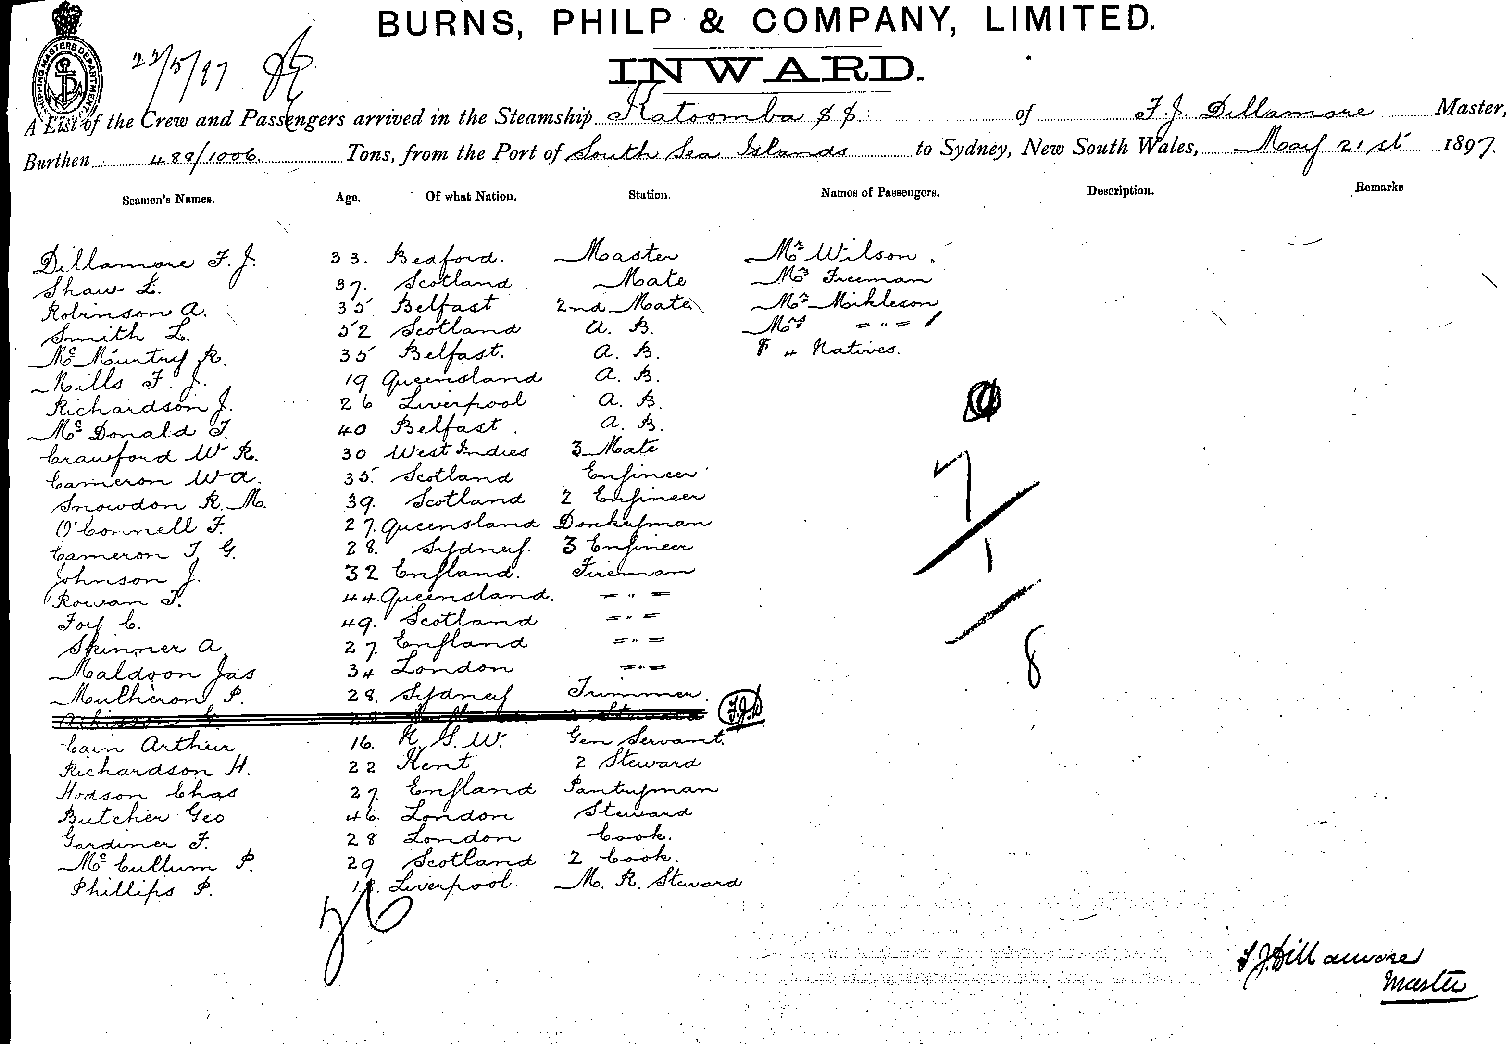 BURNS, PHILP & COMPANY, LIMITED.
INWARD.
SHIPPING MASTERS DEPARTMENT
22/5/97
A List of the Crew and Passengers arrived in the Steamship Katoomba SS. of F. J. Dillamore Master,
Burthen 489/1006 Tons, from the Port of South Sea Islands to Sydney, New South Wales, May 21st 1897.
Seamen's Names. Age. Of what Nation. Station. Names of Passengers. Description. Remarks
Dillamore F. J. 33. Bedford. Master Mr Wilson.
Shaw L. 37. Scotland Mate Mr Freeman
Robinson A. 35 Belfast 2nd Mate Mr Mikleson
Smith L. 52 Scotland A. B. Mrs = " =
Mc Mountry R. 35 Belfast. A. B. & 4 Natives.
Mills F. J. 19 Queensland A. B.
Richardson J. 26 Liverpool A. B.
Mc Donald T. 40 Belfast. A. B.
Crawford W R. 30 West Indies 3 Mate
Cameron W A. 35. Scotland Engineer
Snowdon R. M. 39. Scotland 2 Engineer
O'Connell F. 27. Queensland Donkeyman
Cameron T G. 28. Sydney. 3 Engineer
Johnson J. 32 England. Fireman
Rowan T. 44. Queensland. = " =
Foy C. 49. Scotland = " =
Skinner A. 27. England = " =
Maldoon Jas 34 London = " =
Mulheron P. 28. Sydney Trimmer.
28 2 Steward F.J.D
Cain Arthur 16. N. S. W. Gen Servant.
Richardson H. 22 Kent 2 Steward
Hodson Chas 27 England Pantryman
Butcher Geo 46. London Steward
Gardiner F. 28 London Cook.
Mc Cullum P. 29 Scotland 2 Cook.
Phillips P. 18. Liverpool. M. R. Steward
26
7
1
8
F. J. Dillamore
Master